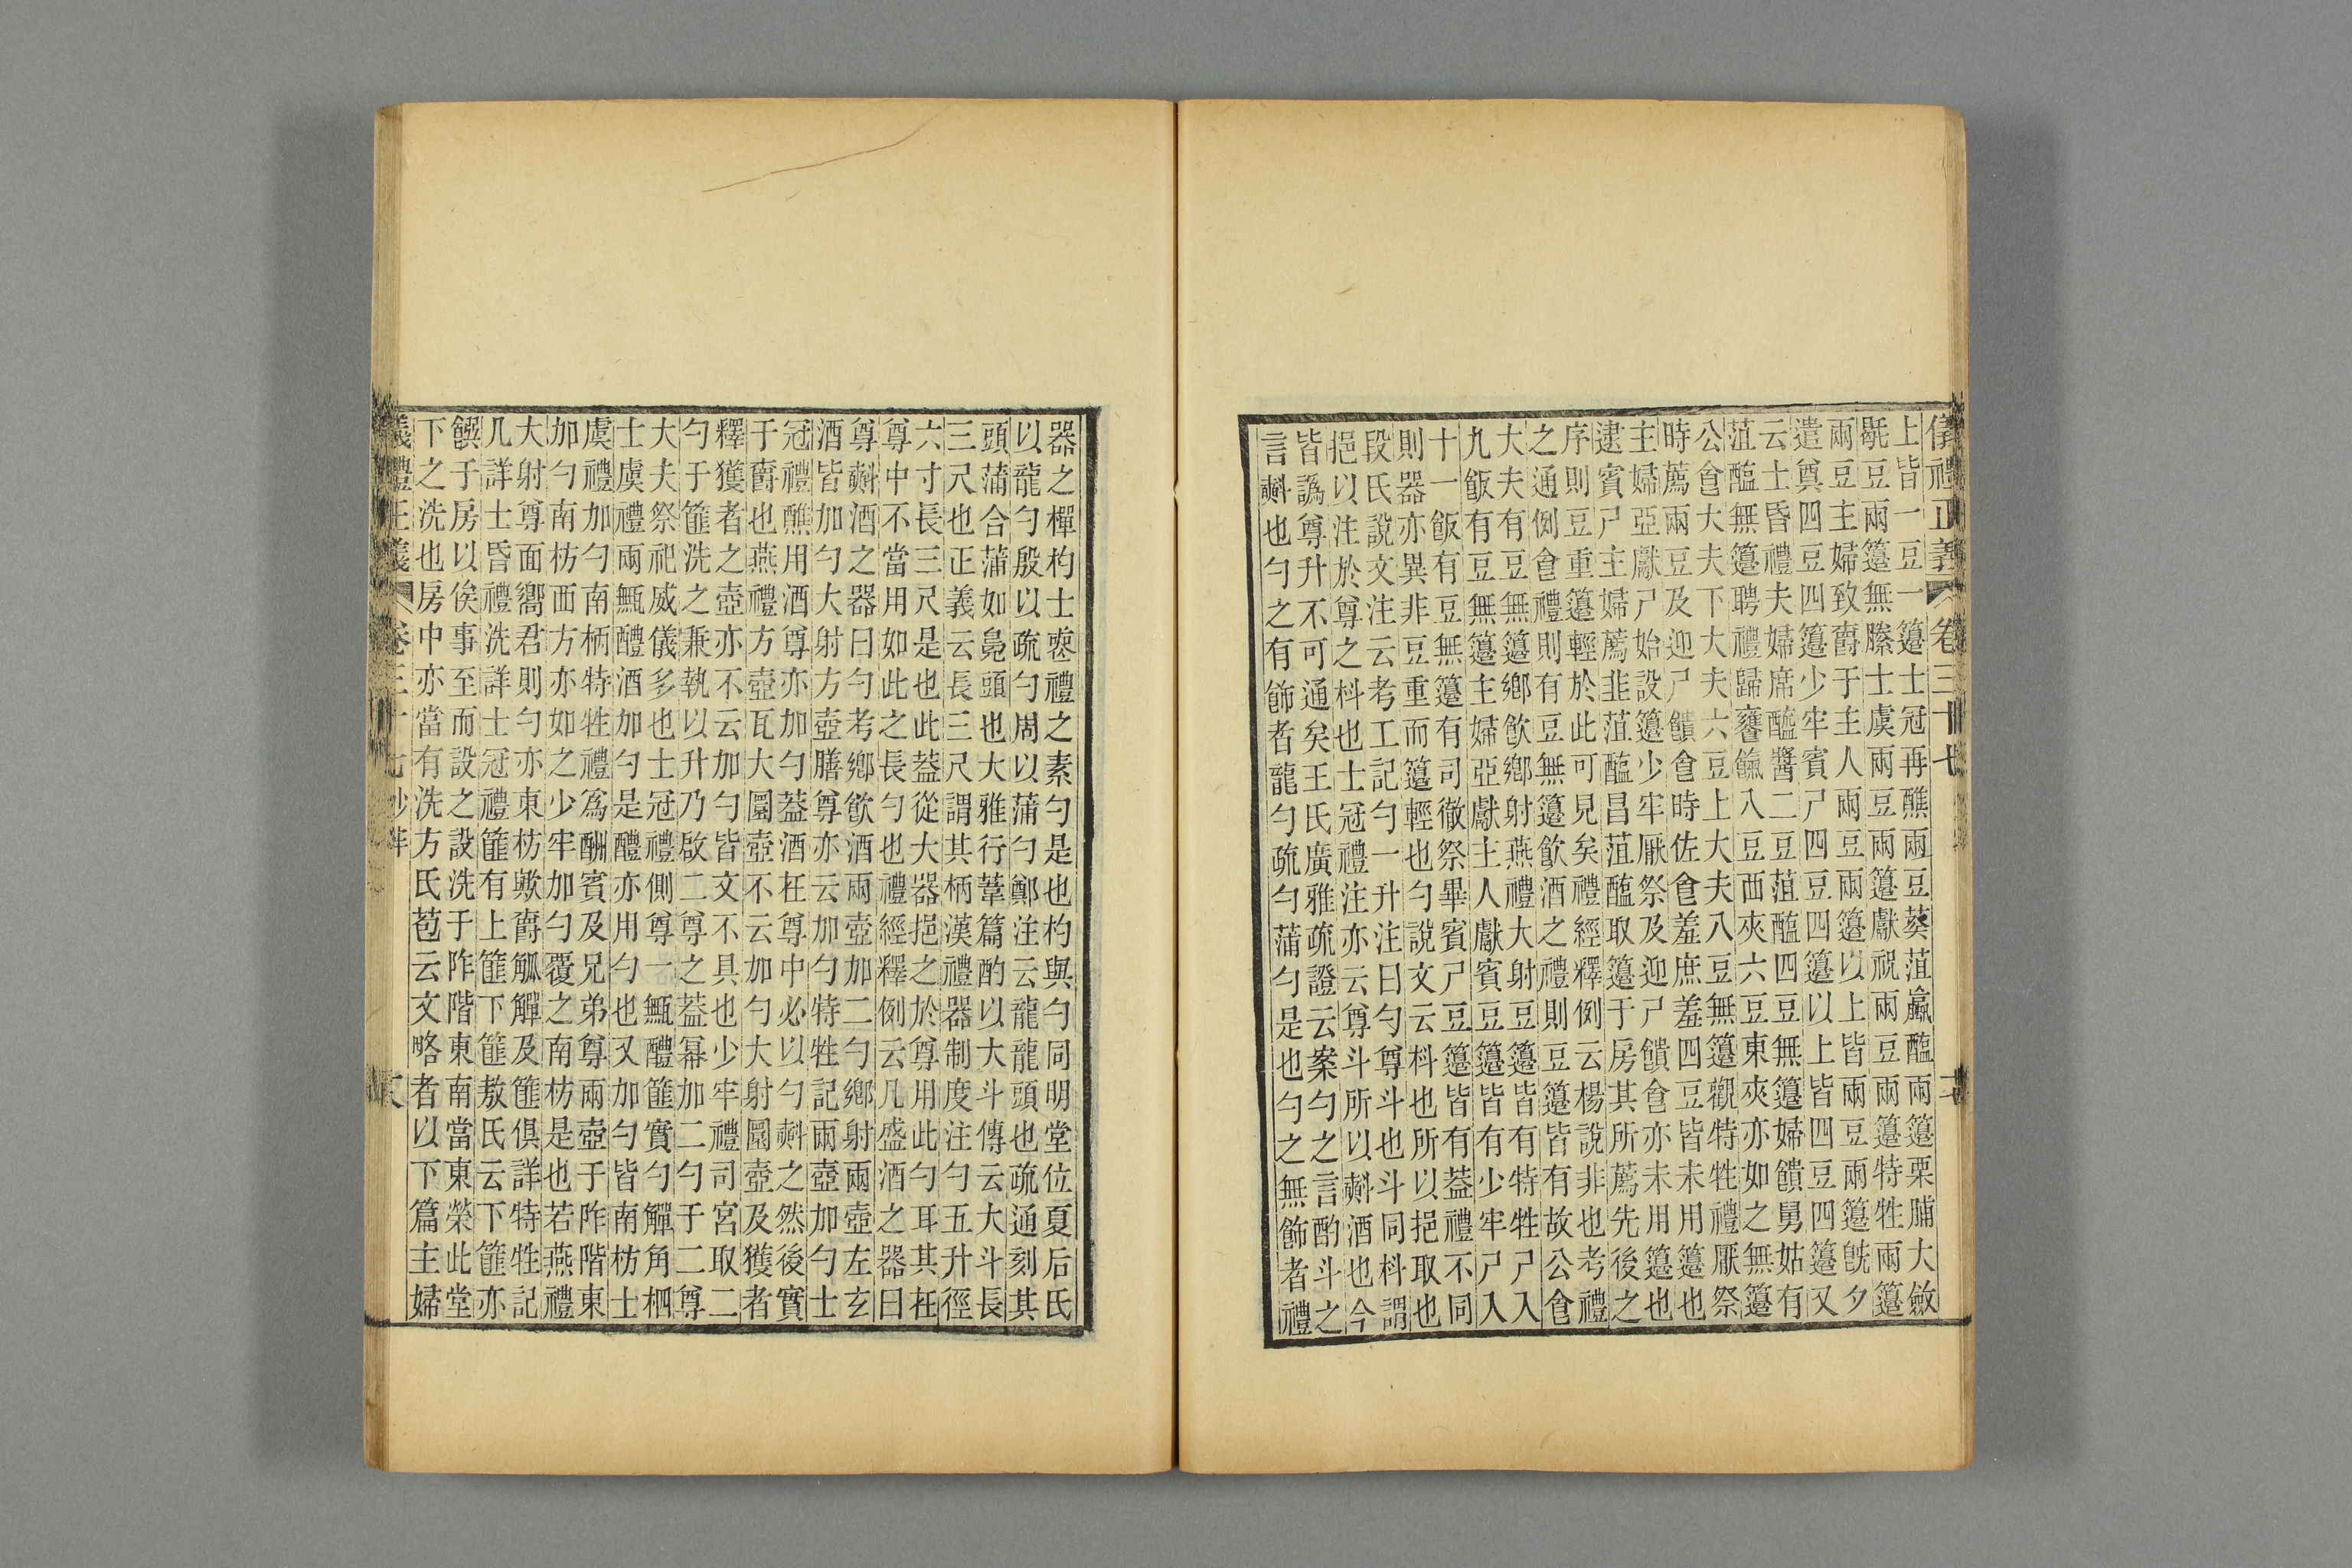 儀禮正義 卷三十七
上皆一豆一籩士冠再醮兩豆葵菹蠃醢兩籩栗脯大斂
毼豆兩籩無縢士虞兩豆兩籩獻祝兩豆兩籩特牲兩籩
兩豆主婦致爵于主人兩豆兩籩以上皆兩豆兩籩旣夕
遣奠四豆四籩少牢賓尸四豆四籩以上皆四豆四籩又
云士昏禮夫婦席醯醬二豆菹醢四豆無籩婦饋舅姑有
菹醢無籩聘禮歸饔餼八豆西夾六豆東夾亦如之無籩
公食大夫下大夫六豆上大夫八豆無籩觀特牲禮厭祭
時薦兩豆及迎尸饋食時佐食羞庶羞四豆皆未用籩也
主婦亞獻尸始設籩少牢厭祭及迎尸饋食亦未用籩也
逮賓尸主婦薦韭菹醢昌菹醢取籩于房其所薦先後之
序則豆重籩輕於此可見矣禮經釋例云楊說非也考禮
之通例食禮則有豆無籩飲酒之禮則豆籩皆有故公食
大夫有豆無籩鄉飲鄉射燕禮大射豆籩皆有特牲尸入
九飯有豆無籩主婦亞獻主人獻賓豆籩皆有少牢尸入
十一飯有豆無籩有司徹祭畢賓尸豆籩皆有葢禮不同
則器亦異非豆重而籩輕也勺說文云枓也所以挹取也
段氏說文注云考工記勺一升注曰勺尊斗也斗同枓謂
挹以注於尊之枓也士冠禮注亦云尊斗所以㪺酒也今
皆譌尊升不可通矣王氏廣雅疏證云案勺之言酌斗之
言㪺也勺之有飾者龍勺疏勺蒲勺是也勺之無飾者禮
器之樿杓士喪禮之素勺是也杓與勺同明堂位夏后氏
以龍勺殷以疏勺周以蒲勺鄭注云龍龍頭也疏通刻其
頭蒲合蒲如鳧頭也大雅行葦篇酌以大斗傳云大斗長
三尺也正義云長三尺謂其柄漢禮器制度注勺五升徑
六寸長三尺是也此葢從大器挹之於尊用此勺耳其在
尊中不當用如此之長勺也禮經釋例云凡盛酒之器曰
尊㪺酒之器曰勺考鄉飲酒兩壺加二勺鄉射兩壺左玄
酒皆加勺大射方壺膳尊亦云加勺特牲記兩壺加勺士
冠禮醮用酒尊亦加勺葢酒在尊中必以勺㪺之然後實
于爵也燕禮方壺瓦大圜壺不云加勺大射圜壺及獲者
釋獲者之壺亦不云加勺皆文不具也少牢禮司宮取二
勺于篚洗之兼執以升乃啟二尊之葢冪加二勺于二尊
大夫祭祀威儀多也士冠禮側尊一甒醴篚實勺觶角柶
士虞禮兩甒醴酒加勺是醴亦用勺也又加勺皆南枋士
虞禮加勺南柄特牲禮爲酬賓及兄弟尊兩壺于阼階東
加勺南枋西方亦如之少牢加勺覆之南枋是也若燕禮
大射尊面嚮君則勺亦東枋歟爵觚觶及篚俱詳特牲記
几詳士昏禮洗詳士冠禮篚有上篚下篚敖氏云下篚亦
饌于房以俟事至而設之設洗于阼階東南當東榮此堂
下之洗也房中亦當有洗方氏苞云文略者以下篇主婦